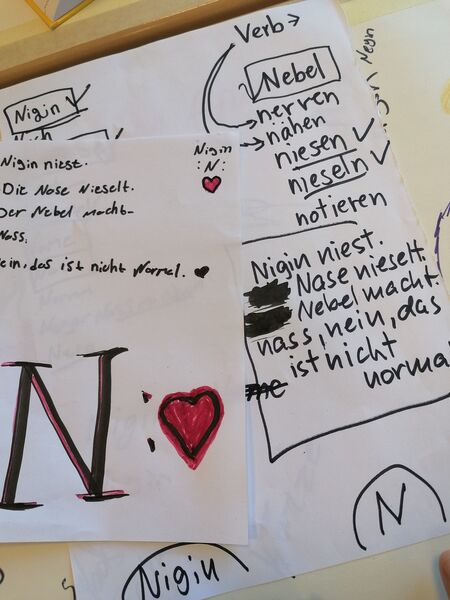 Verb →
Nebel
Nigin ✓
nerren
nähen
niesen ✓
nieseln ✓
notieren
Negin
Nigin
:N:
Nigin niest.
Die Nase Nieselt.
Der Nebel macht-
Nass,
ein, das ist nicht Normal.
N
Nigin niest.
Nase nieselt.
Nebel macht
nass, nein, das
ist nicht
norma
N
Nigin